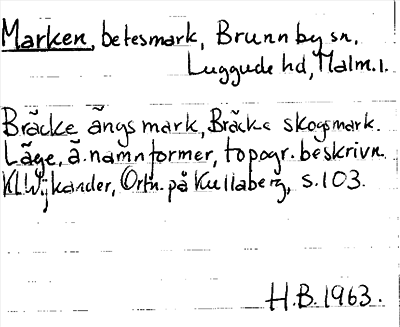 Marken, betesmark, Brunnby sn,
Luggude hd, Malm.l.
Bräcke ängsmark, Bräcke skogsmark.
Läge, ä. namnformer, topogr. beskrivn.
KLWijkander, Ortn. på Kullaberg, s.103.
H.B. 1963.